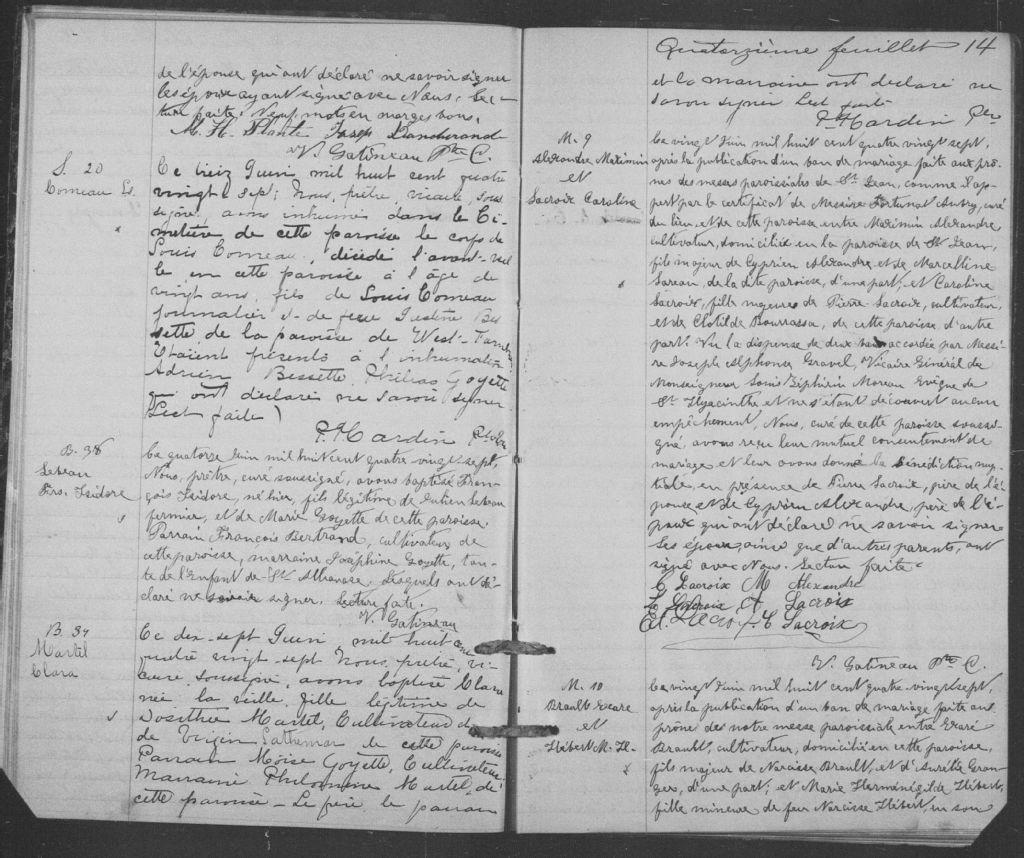 de l'épouse qui ont déclaré ne savoir signer
les époux ayant signé avec Nous. Lec-
ture faite. Neuf mots en marges bons.
M. H. Plante Joseph Blanchard
V. Gatineau Ptre C.
S. 20
Comeau Ls.
Ce treize Juin mil huit cent quatre
vingt sept; Nous, prêtre, vicaire, sous
signé, avons inhumé dans le Ci-
metière de cette paroisse le corps de
Louis Comeau, décédé l'avant-veil
le en cette paroisse à l'âge de
vingt ans, fils de Louis Comeau
journalier & de feue Justine Bes
sette, de la paroisse de West-Farnham
Etaient présents à l'inhumation
Adrien Bessette, Philias Goyette
qui ont déclaré ne savoir signer
Lect faite)
Hardin Ptre
B. 36
Lebeau
Frs. Isidore
Le quatorze Juin mil huit cent quatre vingt-sept,
Nous, prêtre, curé soussigné, avons baptisé Fran-
çois Isidore, né hier, fils légitime de Julien Lebeau
fermier, et de Marie Goyette de cette paroisse.
Parrain François Bertrand, cultivateur de
cette paroisse, marraine Joséphine Goyette, tan-
te de l'Enfant de St. Athanase. Lesquels ont dé-
claré ne savoir signer. Lecture faite.
V. Gatineau
B. 37
Martel
Clara
Ce dix-sept Juin, mil huit cent
quatre vingt-sept Nous, prêtre, vi-
caire, soussigné, avons baptisé Clara
née la veille, fille légitime de
Dosithée Martel, Cultivateur &
de cette paroisse
Parrain Moïse Goyette, Cultivateur
Marraine Philomène Martel, de
cette paroisse - Le père, le parrain
Quatorzième feuillet 14
et la marraine ont déclaré ne
savoir signer Lect faite
Hardin Ptre
M. 9
Alexandre Maximin
et
Lacroix Caroline
Le vingt Juin mil huit cent quatre vingt sept,
après la publication d'un ban de mariage faite aux prô-
nes des messes paroissiales de St. Jean, comme l'ap-
pert par le certificat de Messire Fortunat Aubry, curé
du lieu, et de cette paroisse entre Maximin Alexandre
cultivateur, domicilié en la paroisse de St Jean,
fils majeur de Cyprien Alexandre et de Marcelline
Sareau, de la dite paroisse, d'une part; et Caroline
Lacroix, fille majeure de Pierre Lacroix, cultivateur,
et de Clotilde Bourrassa, de cette paroisse, d'autre
part. Vu la dispense de deux bans accordée par Messi-
re Joseph Alphonse Gravel, Vicaire Général de
Monseigneur Louis Zéphirin Moreau Evêque de
St. Hyacinthe et ne s'étant découvert aucun
empêchement, Nous, curé de cette paroisse soussi-
gné, avons reçu leur mutuel consentement de
mariage et leur avons donné la bénédiction nup-
tiale, en présence de Pierre Lacroix, père de l'é-
pouse, et de Cyprien Alexandre, père de l'é-
poux qui ont déclaré ne savoir signer
Les époux, ainsi que d'autres parents, ont
signé avec Nous. Lecture faite.
C Lacroix M Alexandre
L Lacroix A Lacroix
Lacroix
V. Gatineau Ptre C.
M. 10
Brault Exare
et
Hébert M. H-
Le vingt Juin mil huit cent quatre-vingt sept,
après la publication d'un ban de mariage faite au
prône des notre messe paroissiale entre Exaré
Brault, cultivateur, domicilié en cette paroisse,
fils majeur de Narcisse Brault, et d'Aurélie Gran-
gers, d'une part; et Marie Herménégilde Hébert,
fille mineure de feu Narcisse Hébert, en son